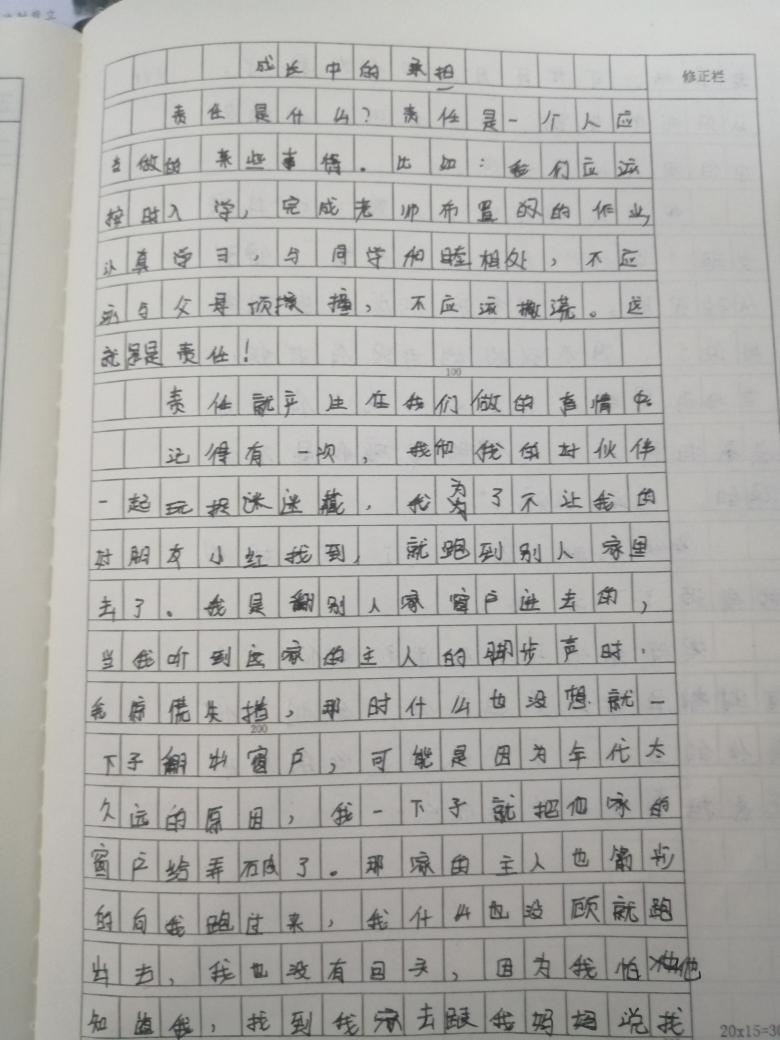 成长中的承担
修正栏
责任是什么？责任是一个人应
当做的某些事情。比如：我们应该
按时入学，完成老师布置的的作业，
认真学习，与同学和睦相处，不应
该与父母顶撞撞，不应该撒谎。这
就是是责任！
100
责任就产生在我们做的事情中。
记得有一次，我和我的好伙伴
一起玩捉迷迷藏，我为了不让我的
好朋友小红找到，就跑到别人家里
去了。我是翻别人家窗户进去的，
当我听到这家的主人的脚步声时.
我惊慌失措，那时什么也没想就一
200
下子翻出窗户，可能是因为年代太
久远的原因，我一下子就把他家的
窗户给弄破了。那家的主人也箭步
的向我跑过来，我什么也没顾就跑
出去，我也没有回头，因为我怕他
知道我，找到我家去跟我妈妈说我
20x15=30